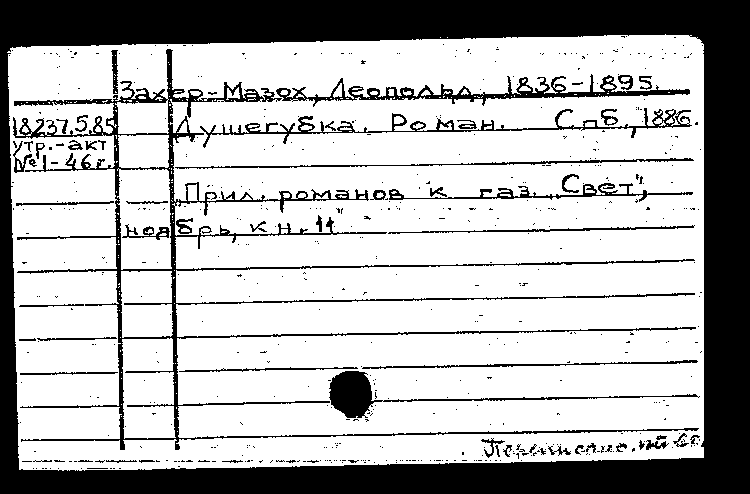 Захер-Мазох, Леопольд, 1836-1895.
18237.5.85
утр.-акт
№1-46г.
Душегубка. Роман. Спб., 1886.
„Прил. романов к газ. „Свет",
ноябрь, кн. 11"